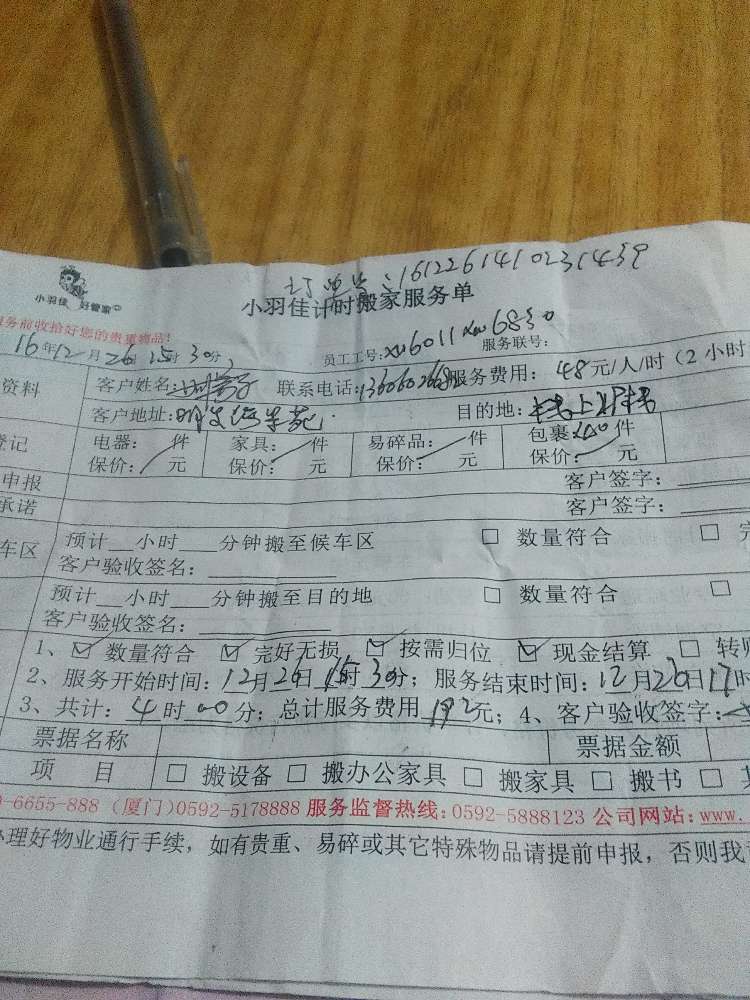 订单号:1612261410231439
小羽佳 好管家
小羽佳计时搬家服务单
务前收拾好您的贵重物品!
16年12月26日15时30分
员工工号:xm6011 xm6830 服务联号:
资料 客户姓名: 联系电话: 服务费用:48元/人/时(2小时
客户地址: 目的地:
登记 电器: 件 家具: 件 易碎品: 件 包裹: 件
保价: 元 保价: 元 保价: 元 保价: 元
申报 客户签字:
承诺 客户签字:
车区 预计 小时 分钟搬至候车区 □ 数量符合 □
客户验收签名:
预计 小时 分钟搬至目的地 □ 数量符合 □
客户验收签名:
1、☑ 数量符合 ☑ 完好无损 ☑ 按需归位 ☑ 现金结算 □ 转账
2、服务开始时间:12月26日15时30分;服务结束时间:12月26日17时
3、共计:4时00分;总计服务费用192元;4、客户验收签字:
票据名称 票据金额
项 目 □ 搬设备 □ 搬办公家具 □ 搬家具 □ 搬书 □
-6655-888 (厦门)0592-5178888 服务监督热线:0592-5888123 公司网站:www.
办理好物业通行手续,如有贵重、易碎或其它特殊物品请提前申报,否则我